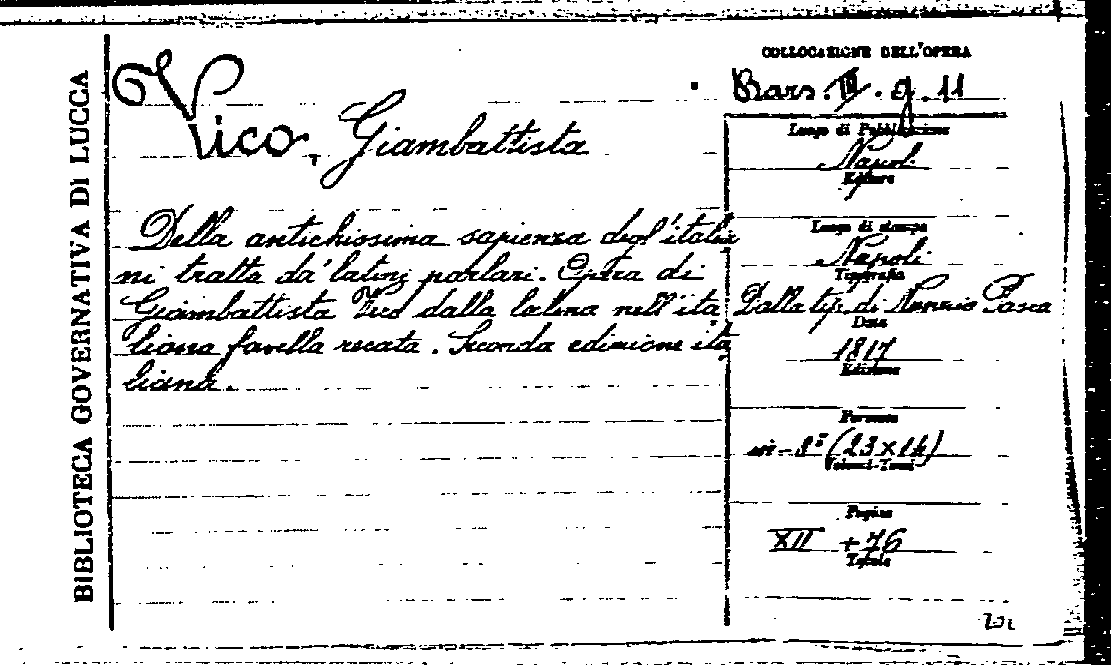 BIBLIOTECA GOVERNATIVA DI LUCCA
Vico, Giambattista
Della antichissima sapienza degl'italia
ni tratta da' latini parlari. Opera di
Giambattista Vico dalla latina nell'ita
liana favella recata. Seconda edizione ita
liana.
COLLOCAZIONE DELL'OPERA
g. 11
Luogo di Pubblicazione
Napoli
Editore
Luogo di stampa
Napoli
Tipografia
Dalla tip. di Nunzio Pasca
Data
1817
Edizione
Formato
in-8º (23x14)
Volumi-Tomi
Pagine
XII + 76
Tavole